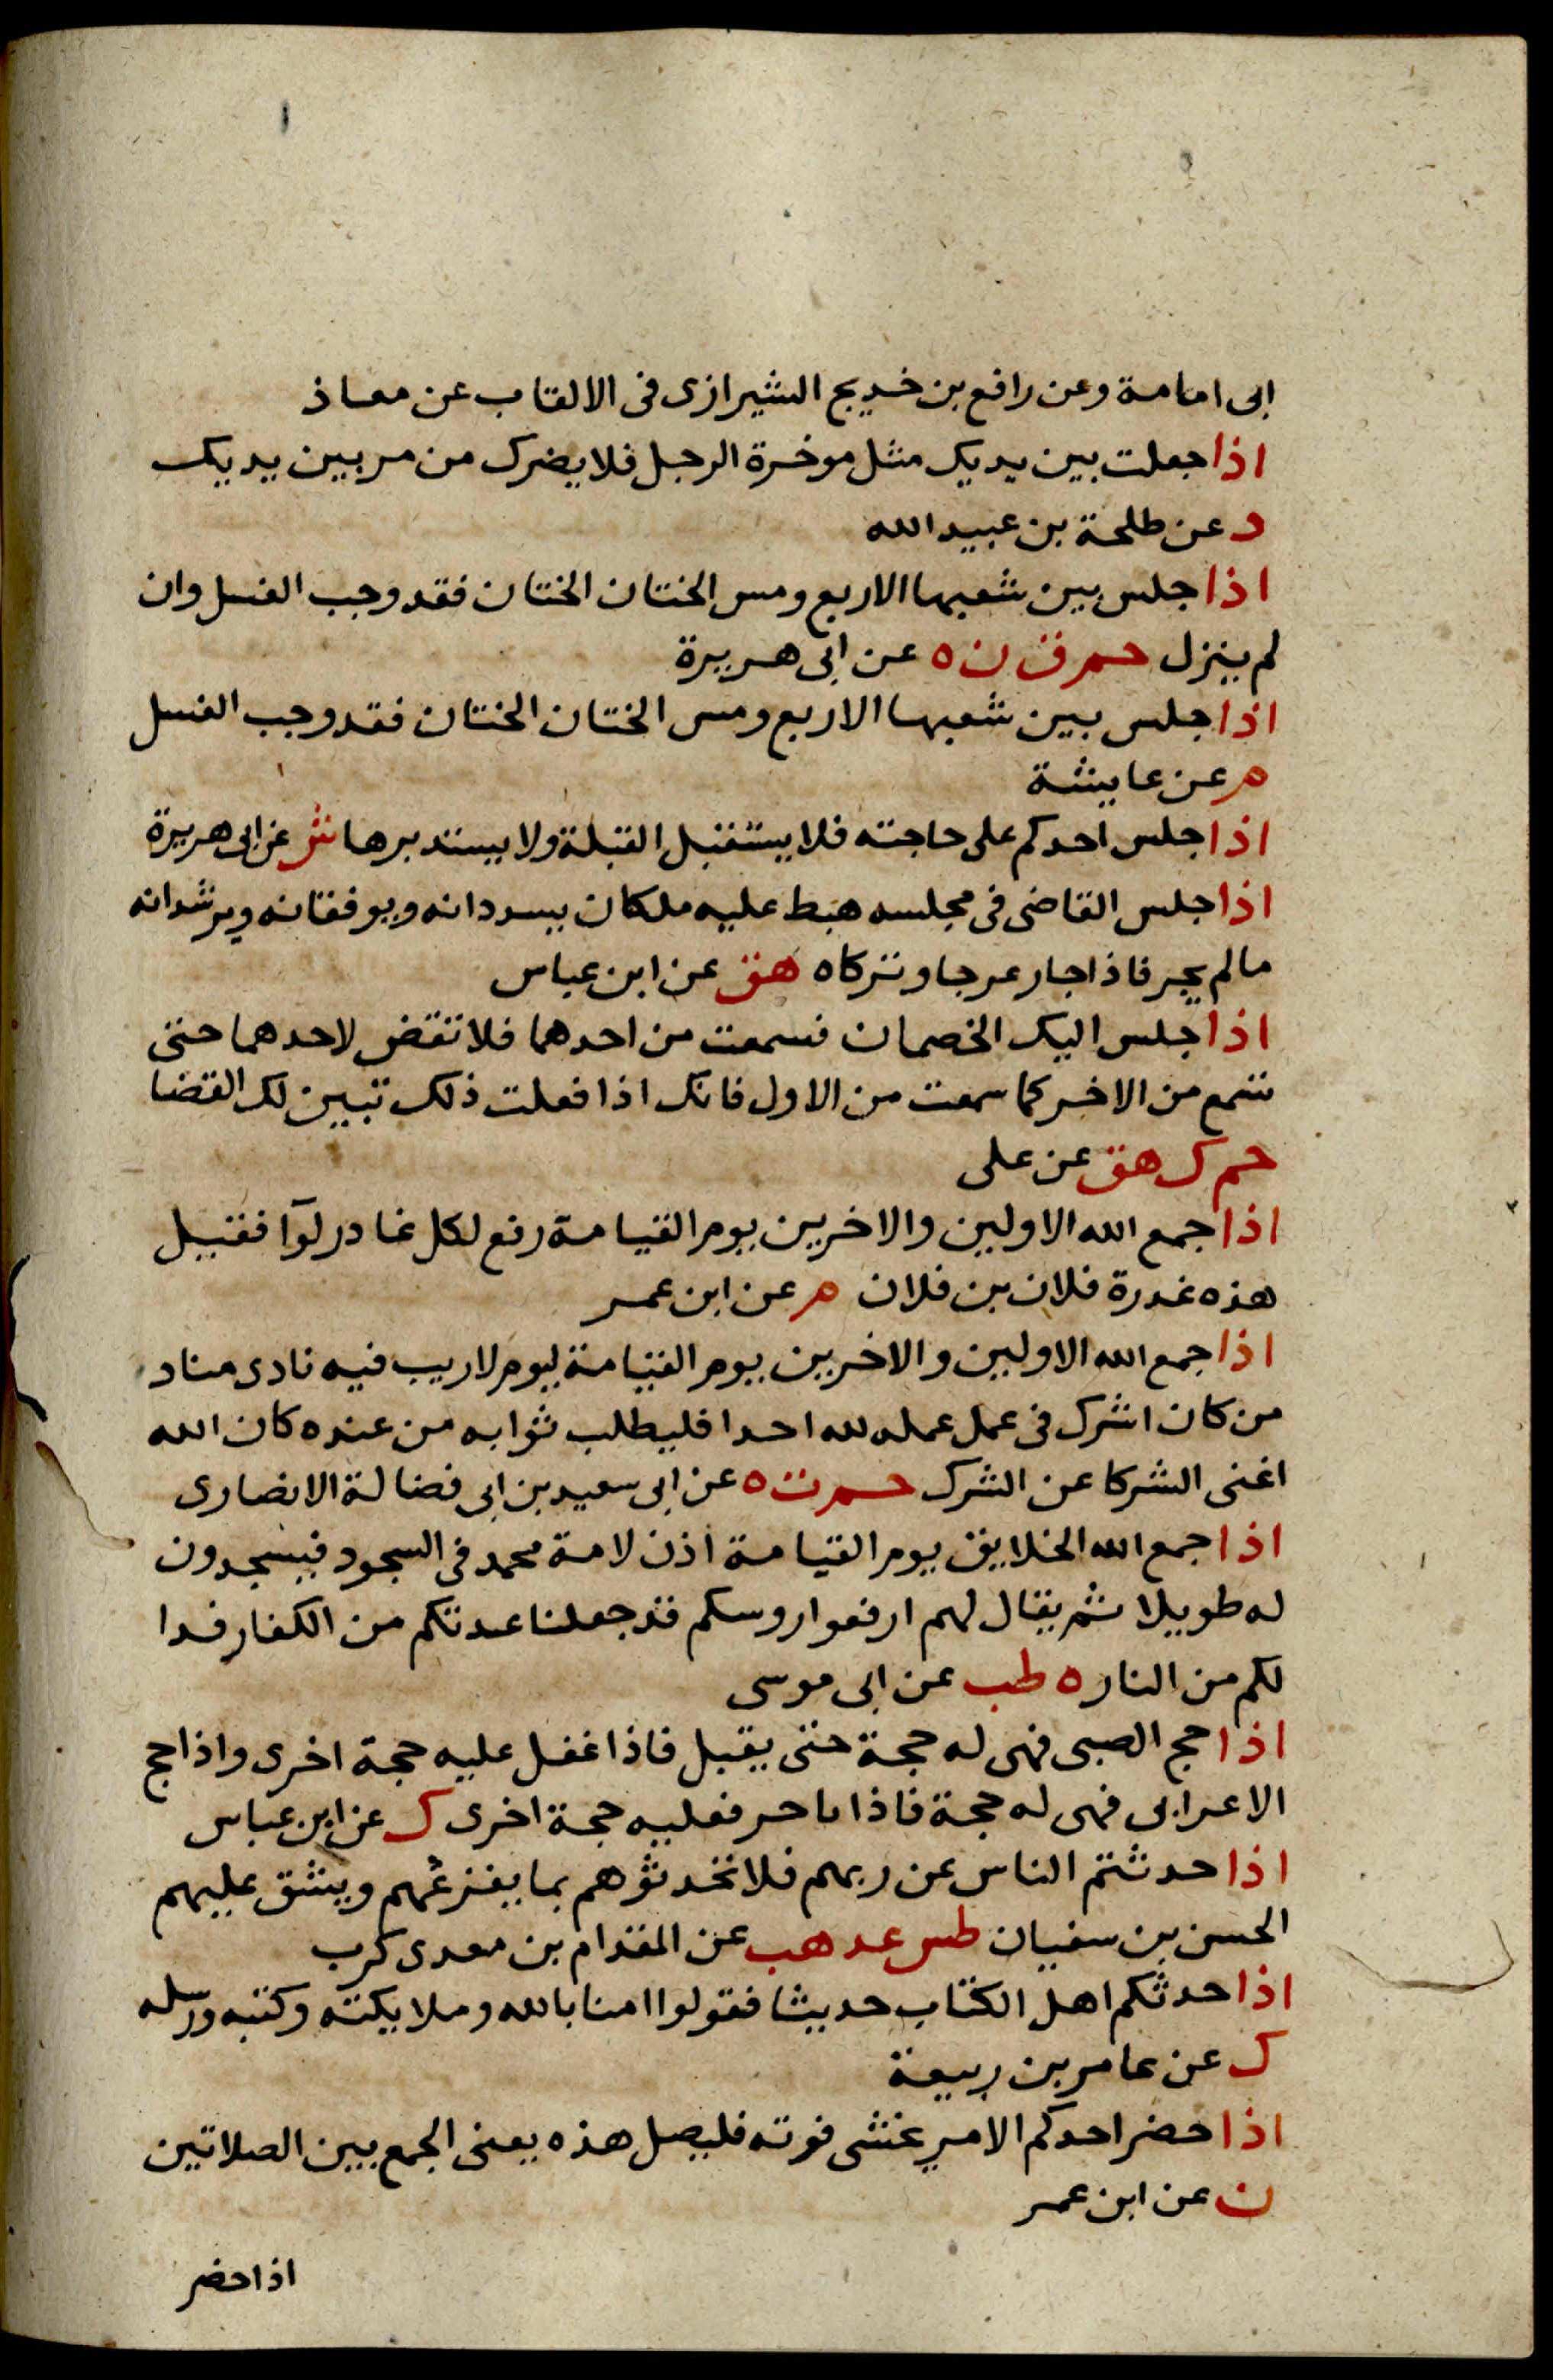 ابى امامة وعن رافع بن خديج الشيرازى فى الالقاب عن معاذ
اذا جعلت بين يديك مثل موخرة الرحل فلا يضرك من مر بين يديك
د عن طلحة بن عبيد الله
اذا جلس بين شعبها الاربع ومس الختان الختان فقد وجب الغسل وان
لم ينزل حم ق ن ه عن ابى هريرة
اذا جلس بين شعبها الاربع ومس الختان الختان فقد وجب الغسل
م عن عايشة
اذا جلس احدكم على حاجته فلا يستقبل القبلة ولا يستدبرها ش عن ابى هريرة
اذا جلس القاضى فى مجلسه هبط عليه ملكان يسددانه ويوفقانه ويرشدانه
مالم يجر فاذا جار عرجا وتركاه هق عن ابن عباس
اذا جلس اليك الخصمان فسمعت من احدهما فلا تقض لاحدهما حتى
تسمع من الاخر كما سمعت من الاول فانك اذا فعلت ذلك تبين لك القضا
حم ك هق عن على
اذا جمع الله الاولين والاخرين يوم القيامة رفع لكل غادر لوآ فقيل
هذه غدرة فلان بن فلان م عن ابن عمر
اذا جمع الله الاولين والاخرين يوم القيامة ليوم لا ريب فيه نادى مناد
من كان اشرك فى عمل عمله لله احدا فليطلب ثوابه من عنده كان الله
اغنى الشركا عن الشرك حم ت ه عن ابى سعيد بن ابى فضالة الانصارى
اذا جمع الله الخلايق يوم القيامة اذن لامة محمد فى السجود فيسجدون
له طويلا ثم يقال لهم ارفعوا روسكم قد جعلنا عدتكم من الكفار فدا
لكم من النار ه طب عن ابى موسى
اذا حج الصبى فهى له حجة حتى يقبل فاذا عقل عليه حجة اخرى واذا حج
الاعرابى فهى له حجة فاذا هاجر فعليه حجة اخرى ك عن ابن عباس
اذا حدثتم الناس عن ربهم فلا تحدثوهم بما يفزعهم ويشق عليهم
الحسن بن سفيان طس عد هب عن المقدام بن معدى كرب
اذا حدثكم اهل الكتاب حديثا فقولوا امنا بالله وملايكته وكتبه ورسله
ك عن عامر بن ربيعة
اذا حضر احدكم الامر يخشى فوته فليصل هذه يعنى الجمع بين الصلاتين
ن عن ابن عمر
اذا حضر